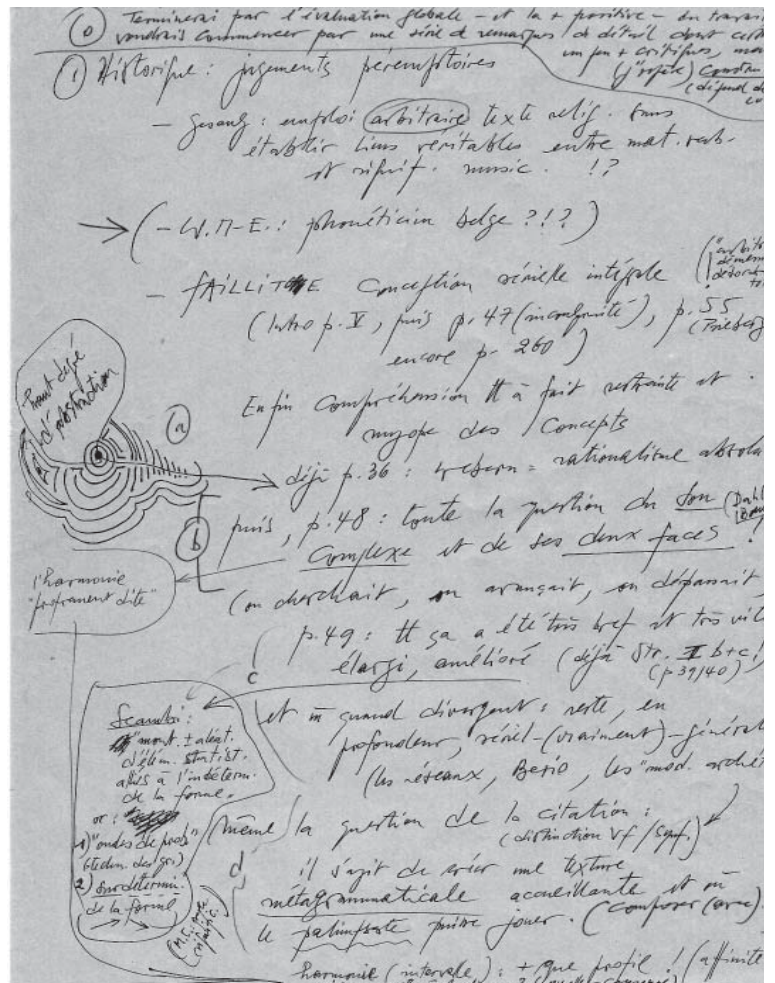 0 Terminerai par l'évaluation globale - et la + positive - du travail
vondrais commencer par une série de remarques de détail dont cert
un peu + critiques, mai
(j'espère) Constru
(dépend de
1 Historique : jugements péremptoires
- Gesang : emploi arbitraire texte relig. sans
établir liens véritables entre mat. verb.
et signif. music. !?
→ (- W.M-E. : phonéticien belge ?!?)
- FAILLITE conception sérielle intégrale
(Intro p. V, puis p. 47 (incongruité), p. 55
encore p. 260)
Haut degré
d'abstraction
a
Enfin compréhension tt à fait restreinte et
myope des Concepts
déjà p. 36 : Webern = rationalisme absolu
b
puis, p. 48 : toute la question du son
complexe et de ses deux faces !
l'harmonie
"proprement dite"
(on cherchait, on avançait, on dépassait,
p. 49 : tt ça a été très bref et très vite
élargi, amélioré (déjà Str. II b+c !
(p 39/40)
c
et m quand divergent : reste, en
profondeur, sériel-(vraiment)-général
(les réseaux, Berio, les "mod. arché
Scambi :
mont. ± aléat.
d'élém. statist.
alliés à l'indéterm.
de la forme.
or :
1) "ondes de prob"
(techn. des gri)
2) surdétermin.
de la forme
d
(même la question de la citation :
(distinction VF /
il s'agit de créer une texture
métagrammaticale accueillante et où
le palimpseste puisse jouer. (Composer (avec)
harmonie (intervalle) : + que profil ! (affinité